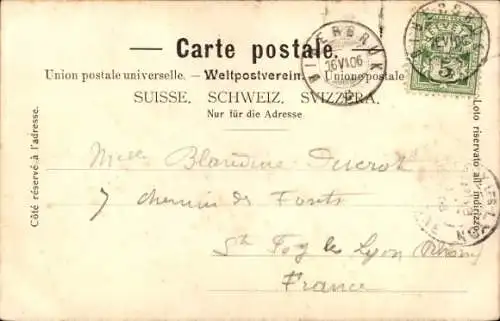 — Carte postale. —
Union postale universelle. — Weltpostverein. — Unione postale
SUISSE. SCHWEIZ. SVIZZERA.
Nur für die Adresse
Côté réservé à l'adresse.
Loto riservato all'indirizzo
HELVETIA
5
16 VI 06
Melle Blandine Ducrot
7 chemin de Fonts
St Foy les Lyon Rhône
France